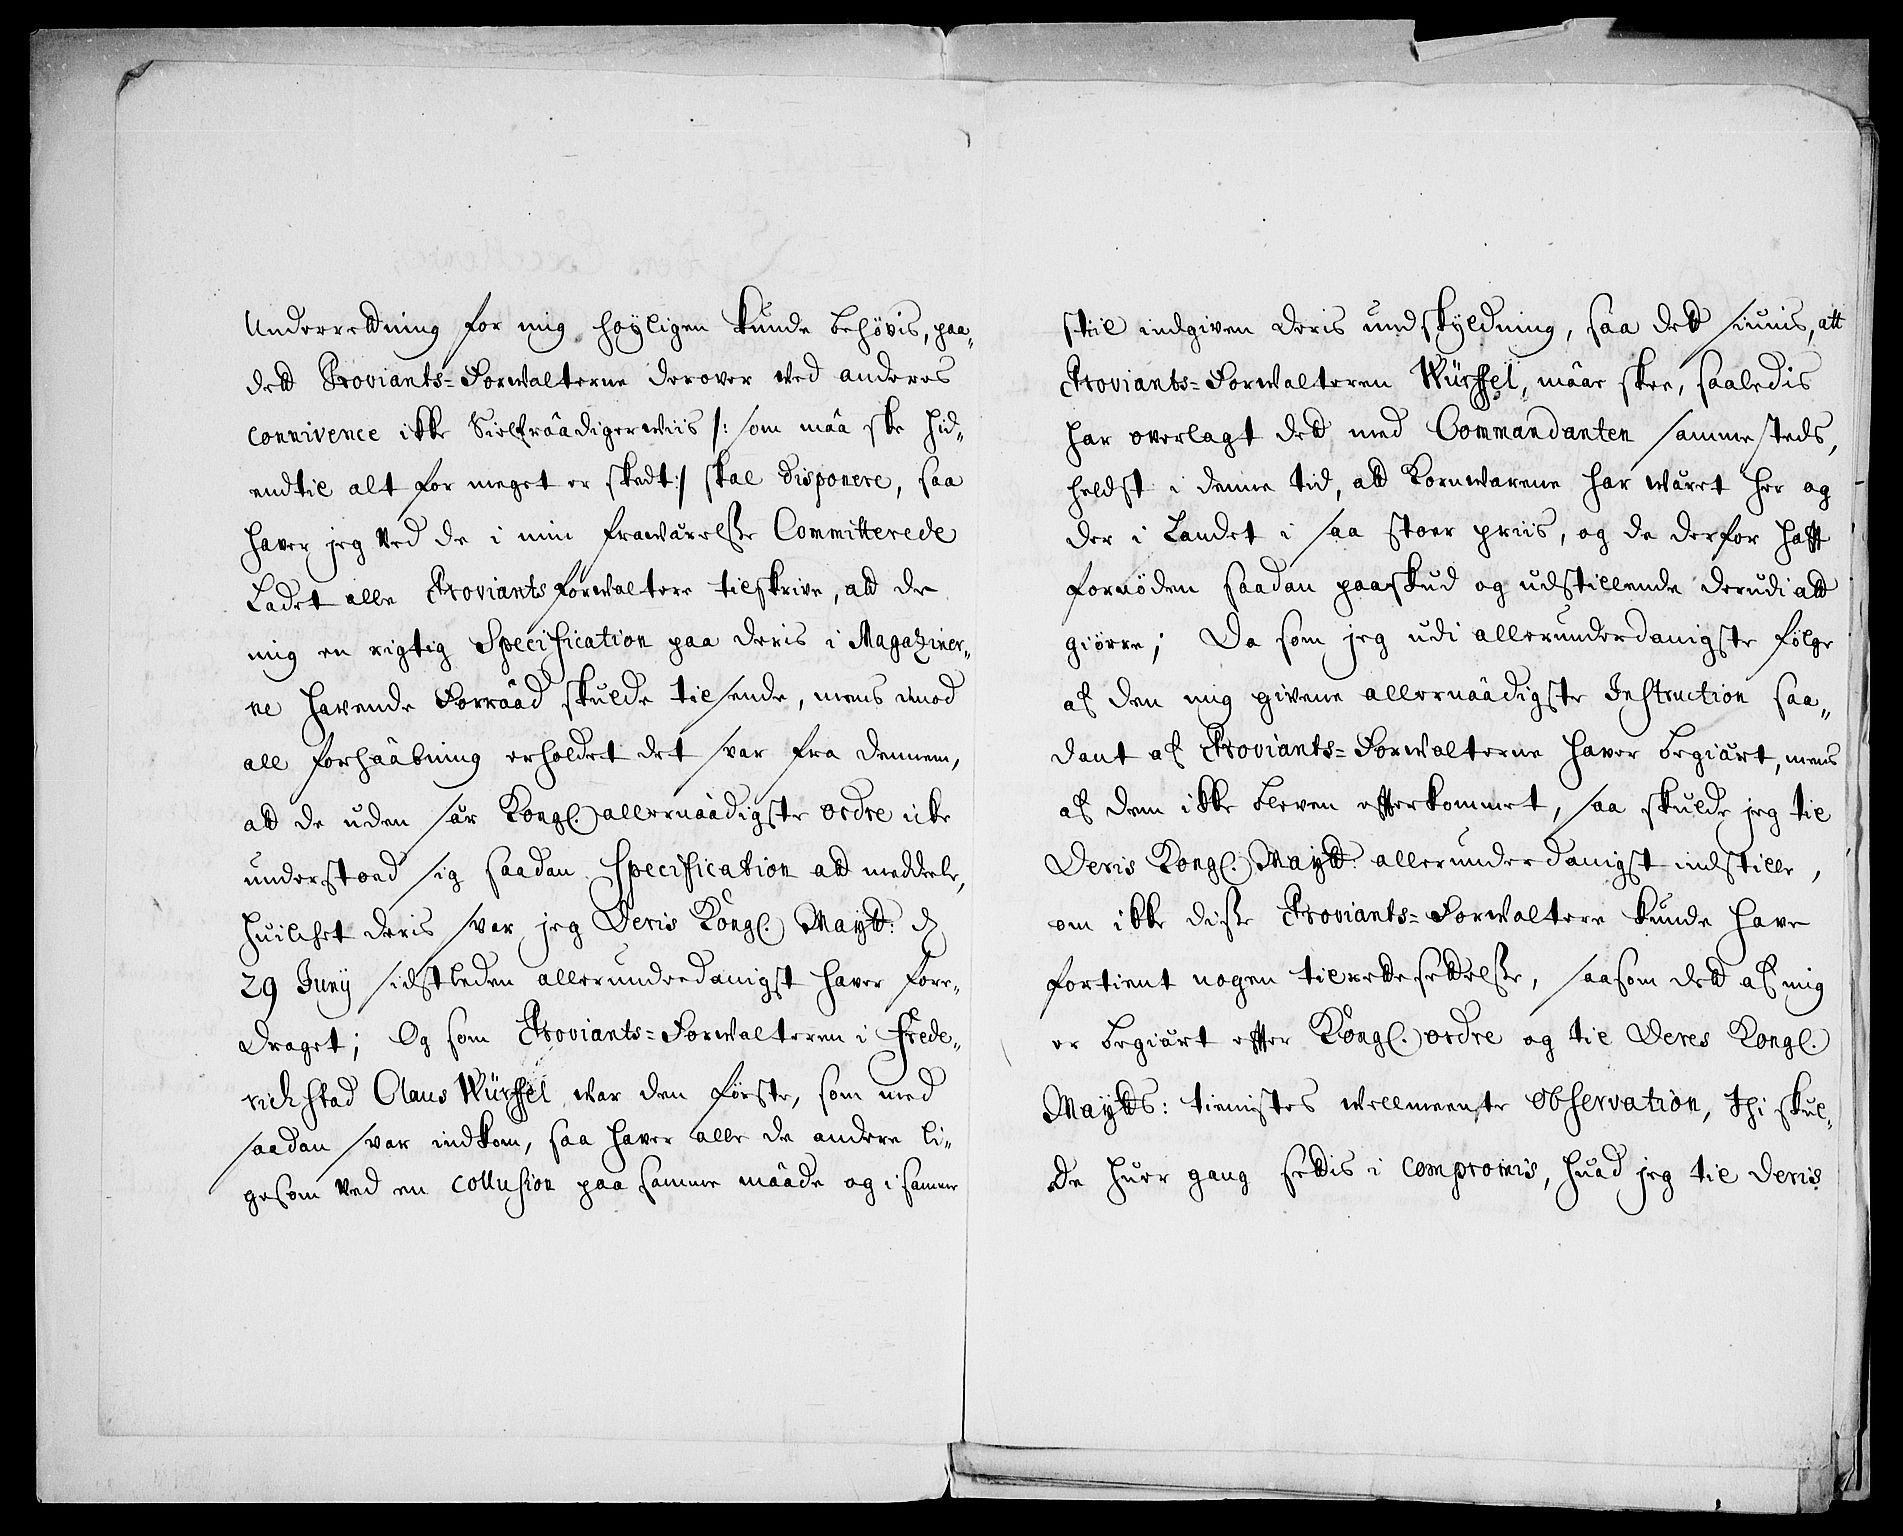 Underretning for mig höyligen kunde behövis, paa„
dett Proviants=Forwalterne derover ved anderes
connivence ikke Sielfraadigerwiis /: som maa ske hid„
endtil alt for meget er skedt :/ skal disponere, saa
haver jeg ved de i min frawærelsse Committerede
Ladet alle Proviantsforwaltere tilskrive, att de
mig en rigtig Specification paa deris i Magaziner„
ne havende Forraad skulde tilsende, mens imod
all forhaabning erholdet det svar fra dennem,
att de uden sær Kongl. allernaadigste ordre icke
understoed sig saadan Specification att meddeele,
huilchet deris svar jeg Deris Kongl. Maytt: d
29 Junij sidstleden allerunderdanigst haver fore„
draget; Og som Proviants=Forwalteren i Frede„
richstad Claus Würffel war den förste, som med
saadan svar indkom, saa haver alle de andere li„
gesom ved en collusion paa samme maade og i samme
stiil indgiven deris undskyldning, saa dett siunis, att
Proviants=Forwalteren Würffel, maae skee, saaledis
har overlagt dett med Commandanten sammesteds,
heldst i denne tid, att Kornwarene har wæret her og
der i Landet i saa stoer priis, og de derfor hafft
fornöden saadan paaskud og udstillende derudi att
giörre; Da som jeg udi allerunderdanigste fölge
af den mig givene allernaadigste Instruction saa„
dant af Proviants=Forwalterne haver begiært, mens
af dem ikke bleven effterkommet, saa skulde jeg til
Deris Kongl. Maytt: allerunderdanigst indstille,
om ikke disse Proviants=Forwaltere kunde have
fortient nogen tilrettesettelsse, saasom dett af mig
er begiært effter Kongl. ordre og til Deres Kongl.
Maytts: tienistes wellmeente observation, thi skul„
de huer gang settis i compromis, huad jeg til Deris